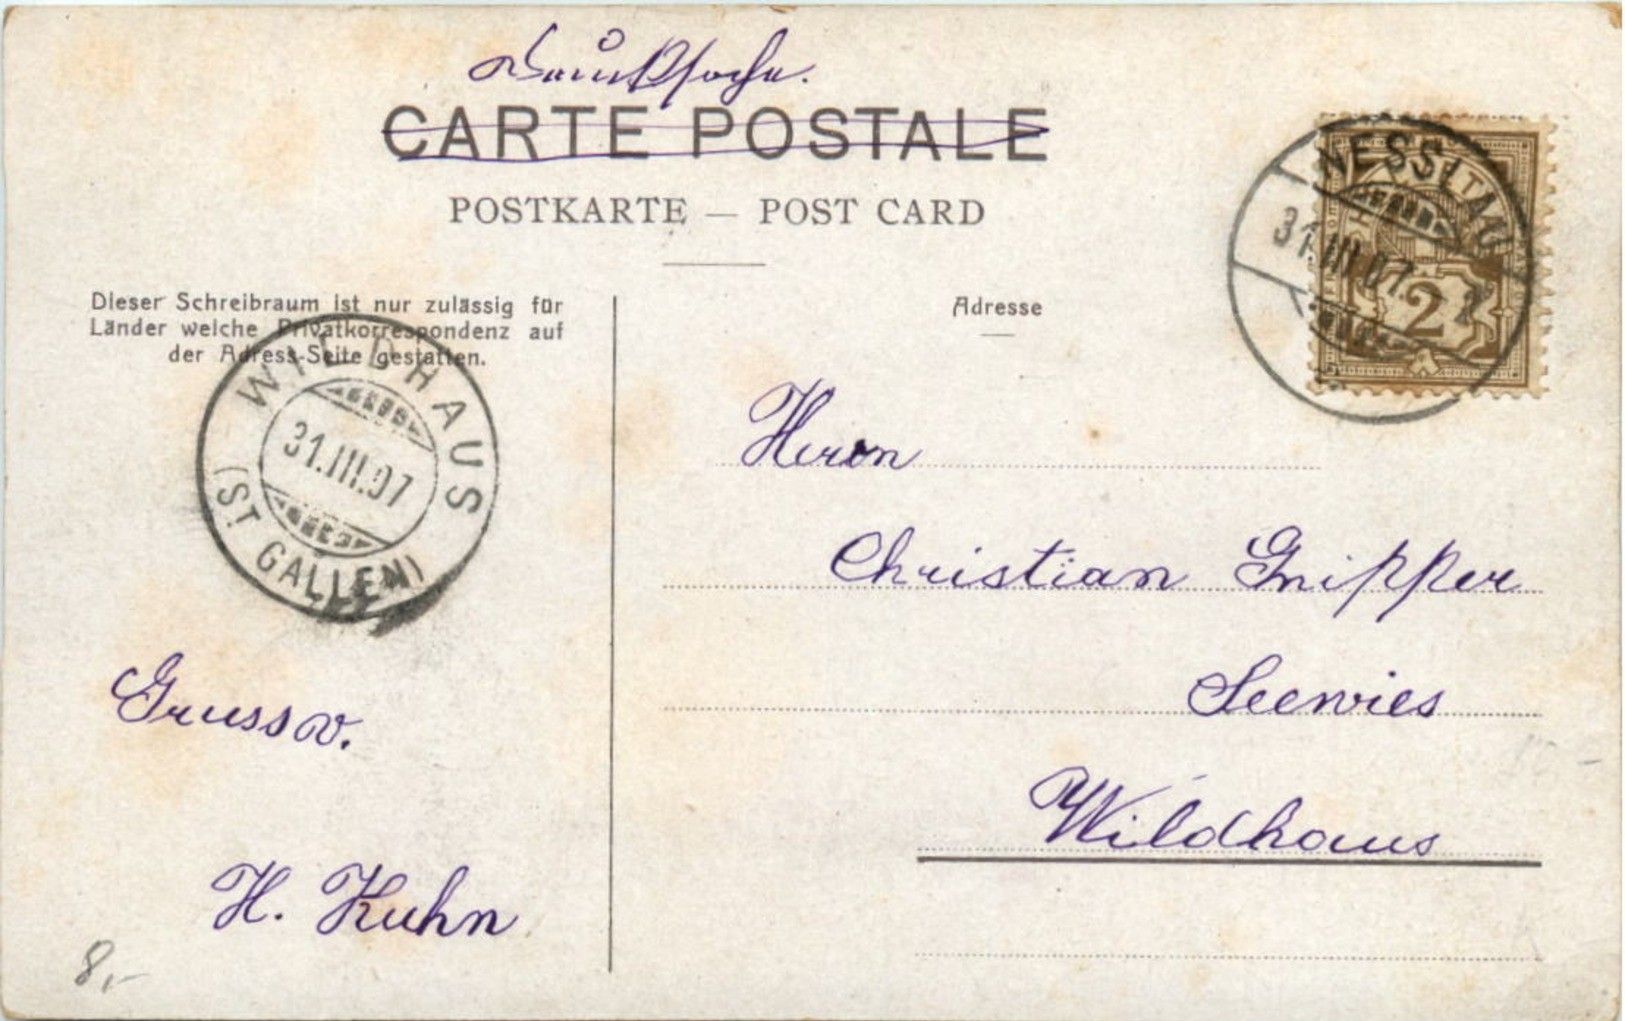 Drucksache.
CARTE POSTALE
POSTKARTE — POST CARD
Dieser Schreibraum ist nur zulässig für
Länder welche Privatkorrespondenz auf
der Adress-Seite gestatten.
Adresse
NESSLTAU
31.III.07. 2
2
WILDHAUS
31.III.07
(ST GALLEN)
Herrn
Christian Gnipper
Seewies
Wildhaus
Gruss v.
H. Kuhn
8,-